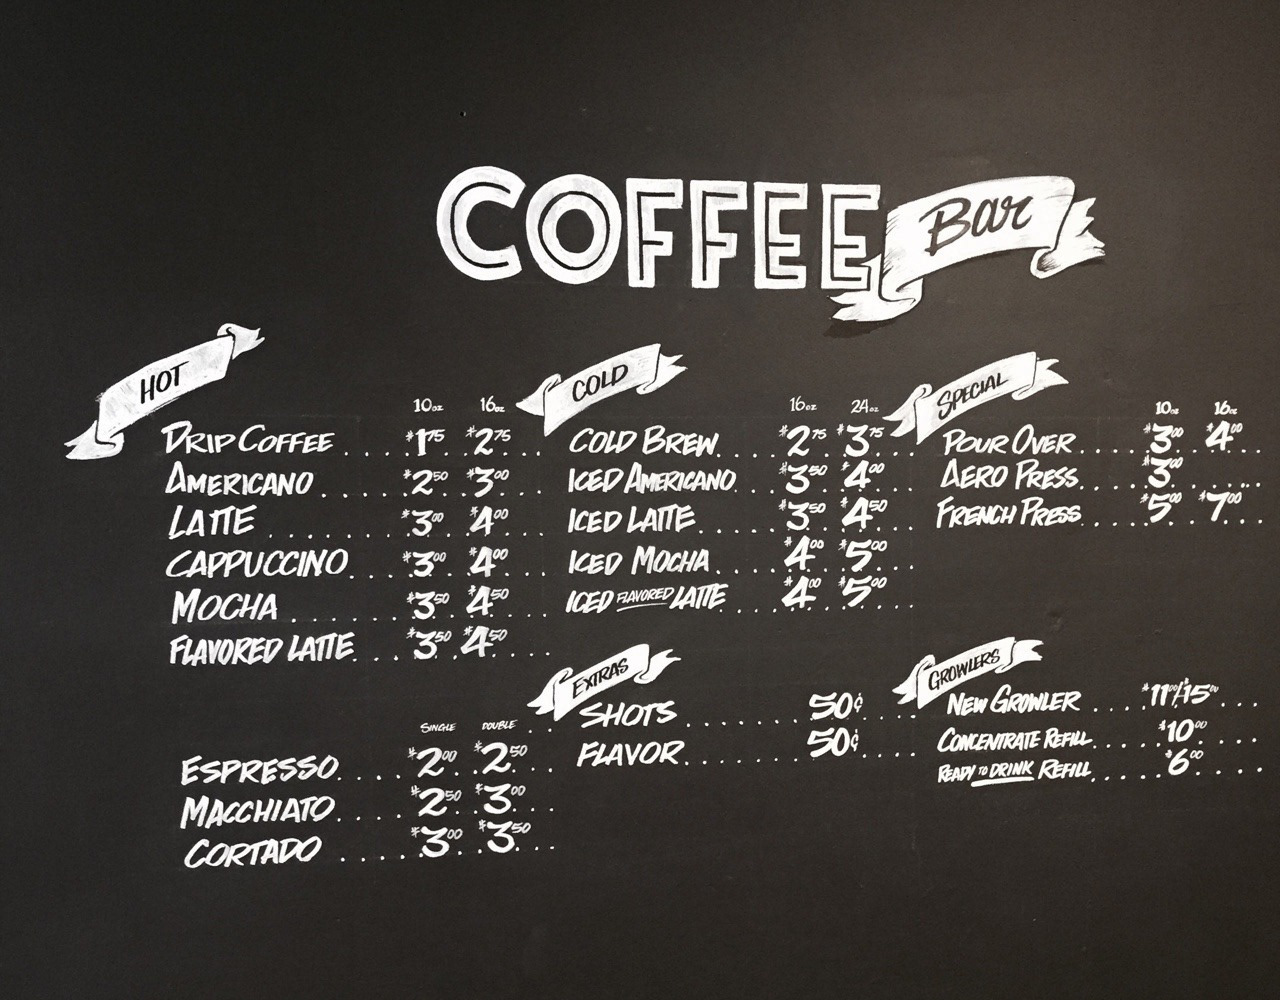 COFFEE Bar
HOT
10oz 16oz
DRIP COFFEE . . . . $1.75 $2.75
AMERICANO . . . . $2.50 $3.00
LATTE . . . . $3.00 $4.00
CAPPUCCINO . . . . $3.00 $4.00
MOCHA . . . . $3.50 $4.50
FLAVORED LATTE . . . . $3.50 $4.50
SINGLE DOUBLE
ESPRESSO . . . . $2.00 $2.50
MACCHIATO . . . . $2.50 $3.00
CORTADO . . . . $3.00 $3.50
COLD
16oz 24oz
COLD BREW . . . . $2.75 $3.75
ICED AMERICANO . . . . $3.50 $4.00
ICED LATTE . . . . $3.50 $4.50
ICED MOCHA . . . . $4.00 $5.00
ICED FLAVORED LATTE . . . . $4.00 $5.00
EXTRAS
SHOTS . . . . 50¢
FLAVOR . . . . 50¢
SPECIAL
10oz 16oz
POUR OVER . . . . $3.00 $4.00
AERO PRESS . . . . $3.00
FRENCH PRESS . . . . $5.00 $7.00
GROWLERS
NEW GROWLER . . . . $11.00/$15.00
CONCENTRATE REFILL . . . . $10.00
READY TO DRINK REFILL . . . . $6.00